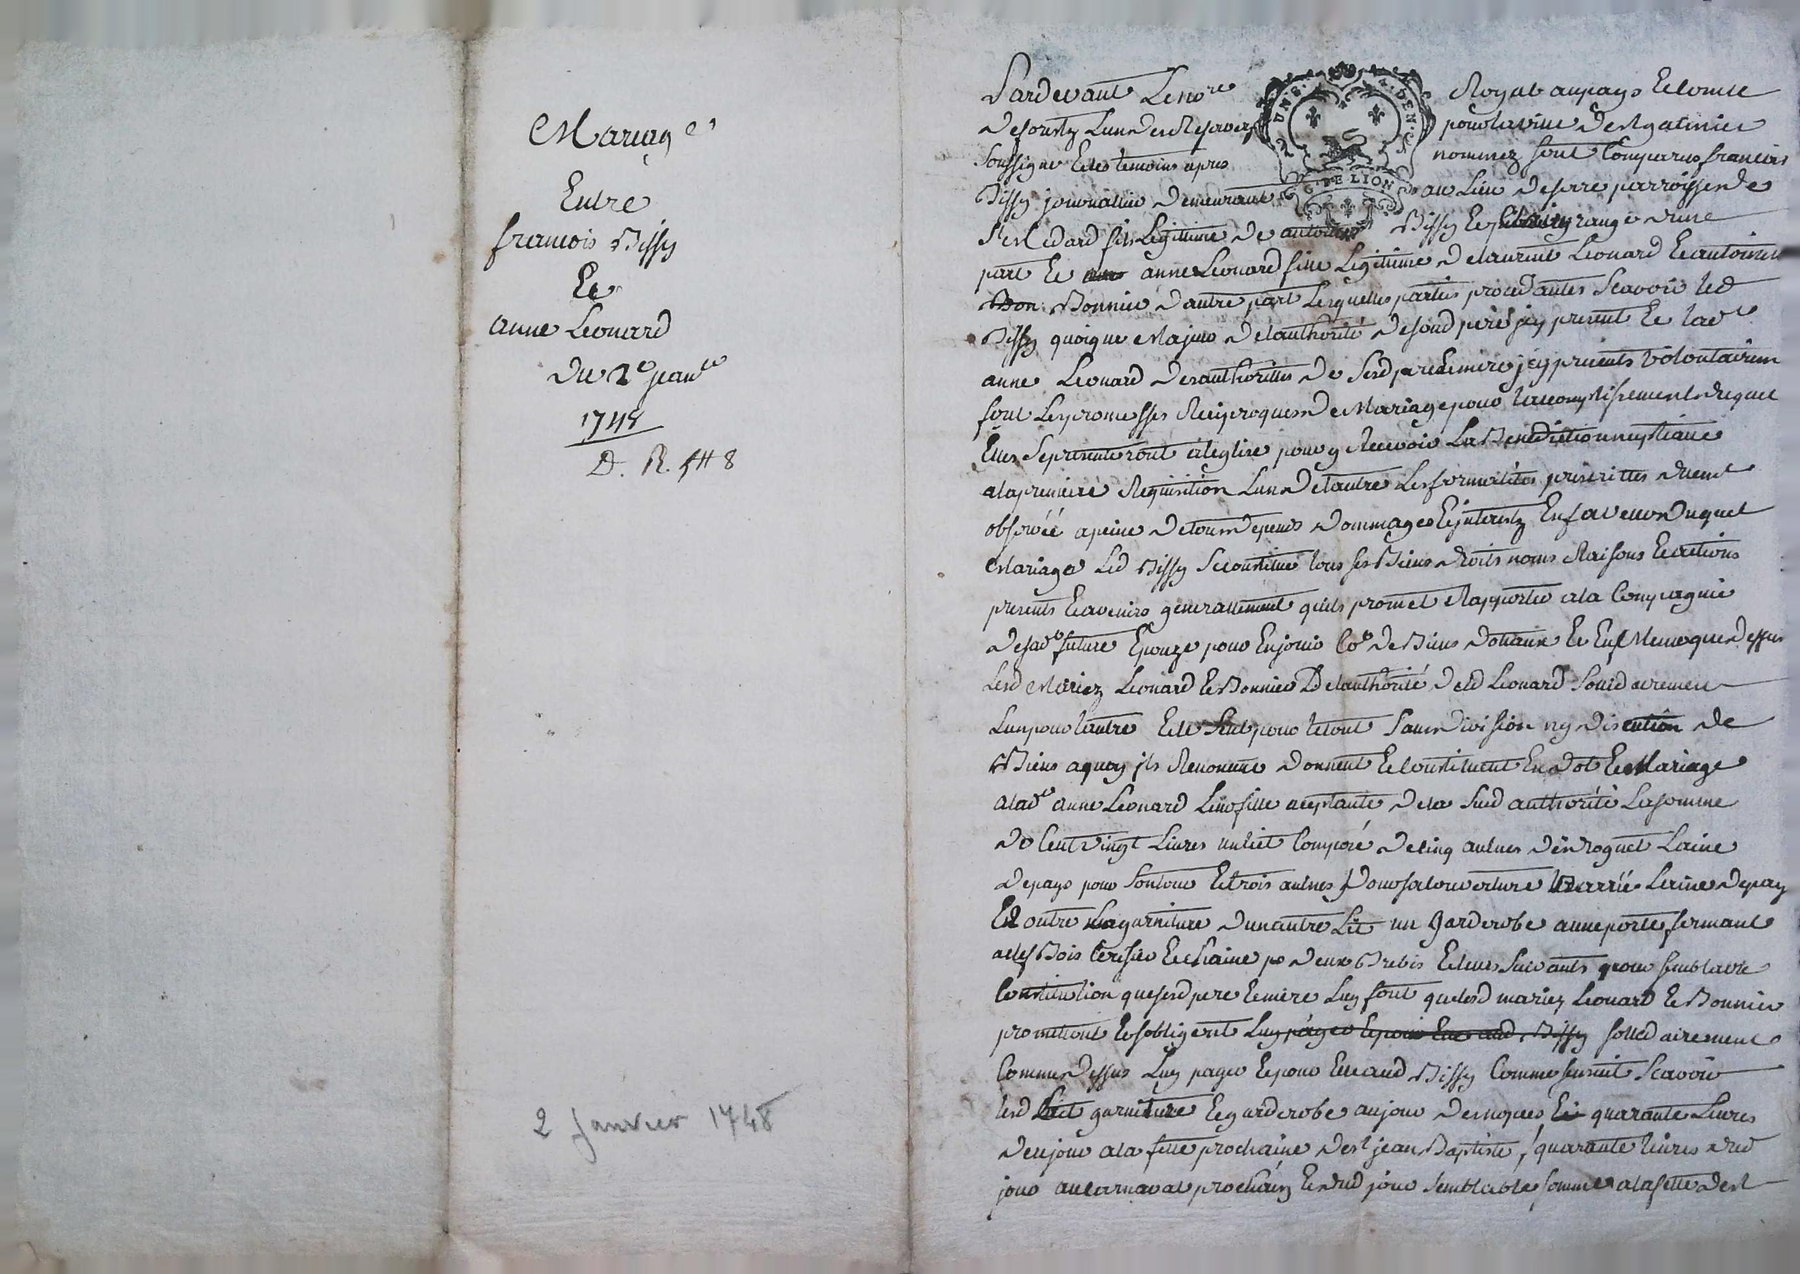 Mariage
Entre
francois Bissy
Et
anne Leonard
Du 2e janvr
1748
D. R. 8
2 Janvier 1748
Pardevant Le nore Royal au pays et comté
de forestz Lun des Reservez pour la ville de St galmier
soussigné Et les temoins apres nommez sont comparus francois
Bissy journallier demeurant au Lieu de parroisse de
St Medard fils Legitime de antoine Bissy Et grange d'une
part Et anne Leonard fille Legitime de Laurent Leonard Et antoinette
Bonnier d'autre part Lesquelles parties procedantes scavoir led
Bissy quoique majeur de lauthorité de sond pere jcy present Et lade
anne Leonard des authorittes de sesd pere Et mere jcy presents volontairemt
font Les promesses Reciproques de Mariage pour l'accomplissement duquel
Elles se presenteront a leglise pour y Recevoir La Benediction nuptialle
a la premiere Requisition Lun de lautre Les formalités prescrittes duemt
observéé a peine de tous depens dommages Et jnterestz En faveur duquel
Mariage Led Bissy se constitue tous ses Biens droits noms Raisons Et actions
presents Et avenirs generallement quils promet Rapporter a la compagnie
de sade future Epouze pour En jouir Co~e de Biens dotaux Et Memes que dessus
Lesd Mariez Leonard Et Bonnier de lauthorité dud Leonard solidairement
Lun pour lautre Et le seul pour le tout sans division ny discution de
Biens aquoy jls Renoncent donnent Et constituent En dot Et Mariage
a lade anne Leonard Leur fille acceptante de la sud authorité La somme
de Cent vingt Livres un liet composé de cinq aulnes de droguet Laine
de pays pour son tour Et trois aulnes pour sa couverture Laine de pay
Et outre la garniture d'un autre Lit un garderobe a une porte fermant
a clef Bois Cerisier Et chaine deux Brebis Et leurs suivants pour semblable
Constitution que sesd pere Et mere Luy font quelesd mariez Leonard Et Bonnier
promettent Et sobligent Luy payer Et pour Elle aud Bissy sollidairement
Comme dessus Luy payer Et pour Elle aud Bissy Comme sensuit scavoir
lesd Liet garniture Et garderobe au jour des nopces Et quarante Livres
de ce jour a la fette prochaine de St jean Baptiste, quarante livres dud
jour au carnaval prochain Et dud jour semblable somme a la fette de St